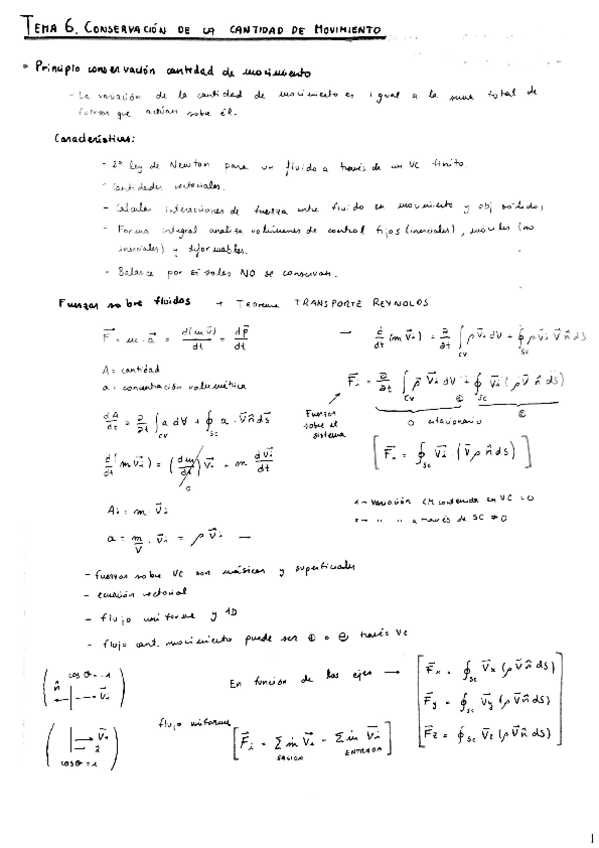 TEMA 6. CONSERVACIÓN DE LA CANTIDAD DE MOVIMIENTO
• Principio conservación cantidad de movimiento
- La variación de la cantidad de movimiento es igual a la suma total de
fuerzas que actúan sobre él.
Características:
- 2ª Ley de Newton para un fluido a través de un VC finito.
- Cantidades vectoriales.
- Calcular interacciones de fuerza entre fluido en movimiento y obj sólidos,
- Forma integral analiza volúmenes de control fijos (inerciales), móviles (no
inerciales) y deformables.
- Balance por sí solos NO se conservan.
Fuerzas sobre fluidos + Teorema TRANSPORTE REYNOLDS
F⃗ = m · a⃗ = d(m v⃗)/dt = dp⃗/dt — d/dt (m V⃗i) = ∂/∂t ∫CV ρ V⃗i dV + ∮SC ρ V⃗i V⃗ n̂ dS
A = cantidad
a = concentración volumétrica
F⃗i = ∂/∂t ∫CV ρ V⃗i dV + ∮SC V⃗i (ρ V⃗ n̂ dS)
Fuerzas
sobre el
sistema
0 estacionario
dA/dt = ∂/∂t ∫CV a dV + ∮SC a · V⃗ n̂ dS
[F⃗i = ∮SC V⃗i · (V⃗ ρ n̂ dS)]
d(m V⃗i)/dt = (dm/dt) V⃗i + m dV⃗i/dt
0
Ai = m · V⃗i
a = m/V · V⃗i = ρ V⃗i —
variación CM contenida en VC = 0
" " a través de SC ≠ 0
- fuerzas sobre VC son másicas y superficiales
- ecuación vectorial
- flujo uniforme y 1D
- flujo cant. movimiento puede ser ⊕ o ⊖ través VC
cos θ = -1
n̂ V⃗i
En función de los ejes →
F⃗x = ∮SC V⃗x (ρ V⃗ n̂ dS)
F⃗y = ∮SC V⃗y (ρ V⃗ n̂ dS)
F⃗z = ∮SC V⃗z (ρ V⃗ n̂ dS)
V⃗i
n̂
cos θ = 1
flujo uniforme
[F⃗i = Σ ṁ V⃗i - Σ ṁ V⃗i]
SALIDA ENTRADA
1